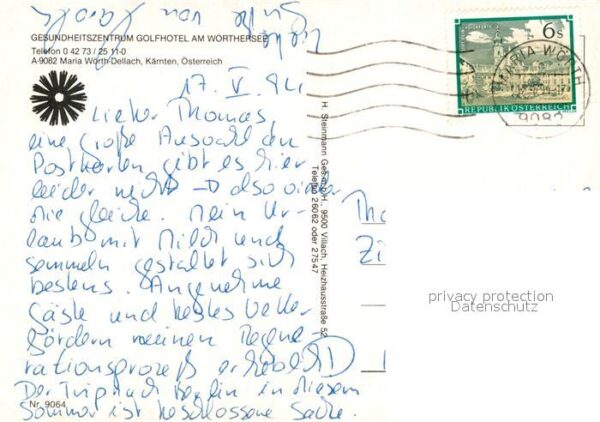 Liebe Grüße von
GESUNDHEITSZENTRUM GOLFHOTEL AM WÖRTHERSEE
Telefon 0 42 73 / 25 11-0
A-9082 Maria Wörth-Dellach, Kärnten, Österreich
17. V. 94
Lieber Thomas
eine große Auswahl an
Postkarten gibt es hier
leider nicht → also
die gleiche. Mein Ur-
laub mit Milch und
semmeln gestaltet sich
bestens. Angenehme
Gäste und bestes
fördern meinen Regene-
rationsprozeß erheblich
Der Trip nach Berlin in diesem
Sommer ist beschlossene Sache.
Nr. 9064
H. Steinmann Ges.m.b.H., 9500 Villach, Heizhausstraße 52
Telefon 26062 oder 27547
6 S
REPUBLIK ÖSTERREICH
MARIA WÖRTH
9082
Th
Zi
privacy protection
Datenschutz